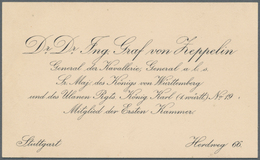 Dr. Dr. Ing. Graf von Zeppelin
General der Kavallerie, General a. l. s.
Sr. Maj. des Königs von Württemberg
und des Ulanen Regts. König Karl (1. württ.) No. 19
Mitglied der Ersten Kammer.
Stuttgart Herdweg 66.